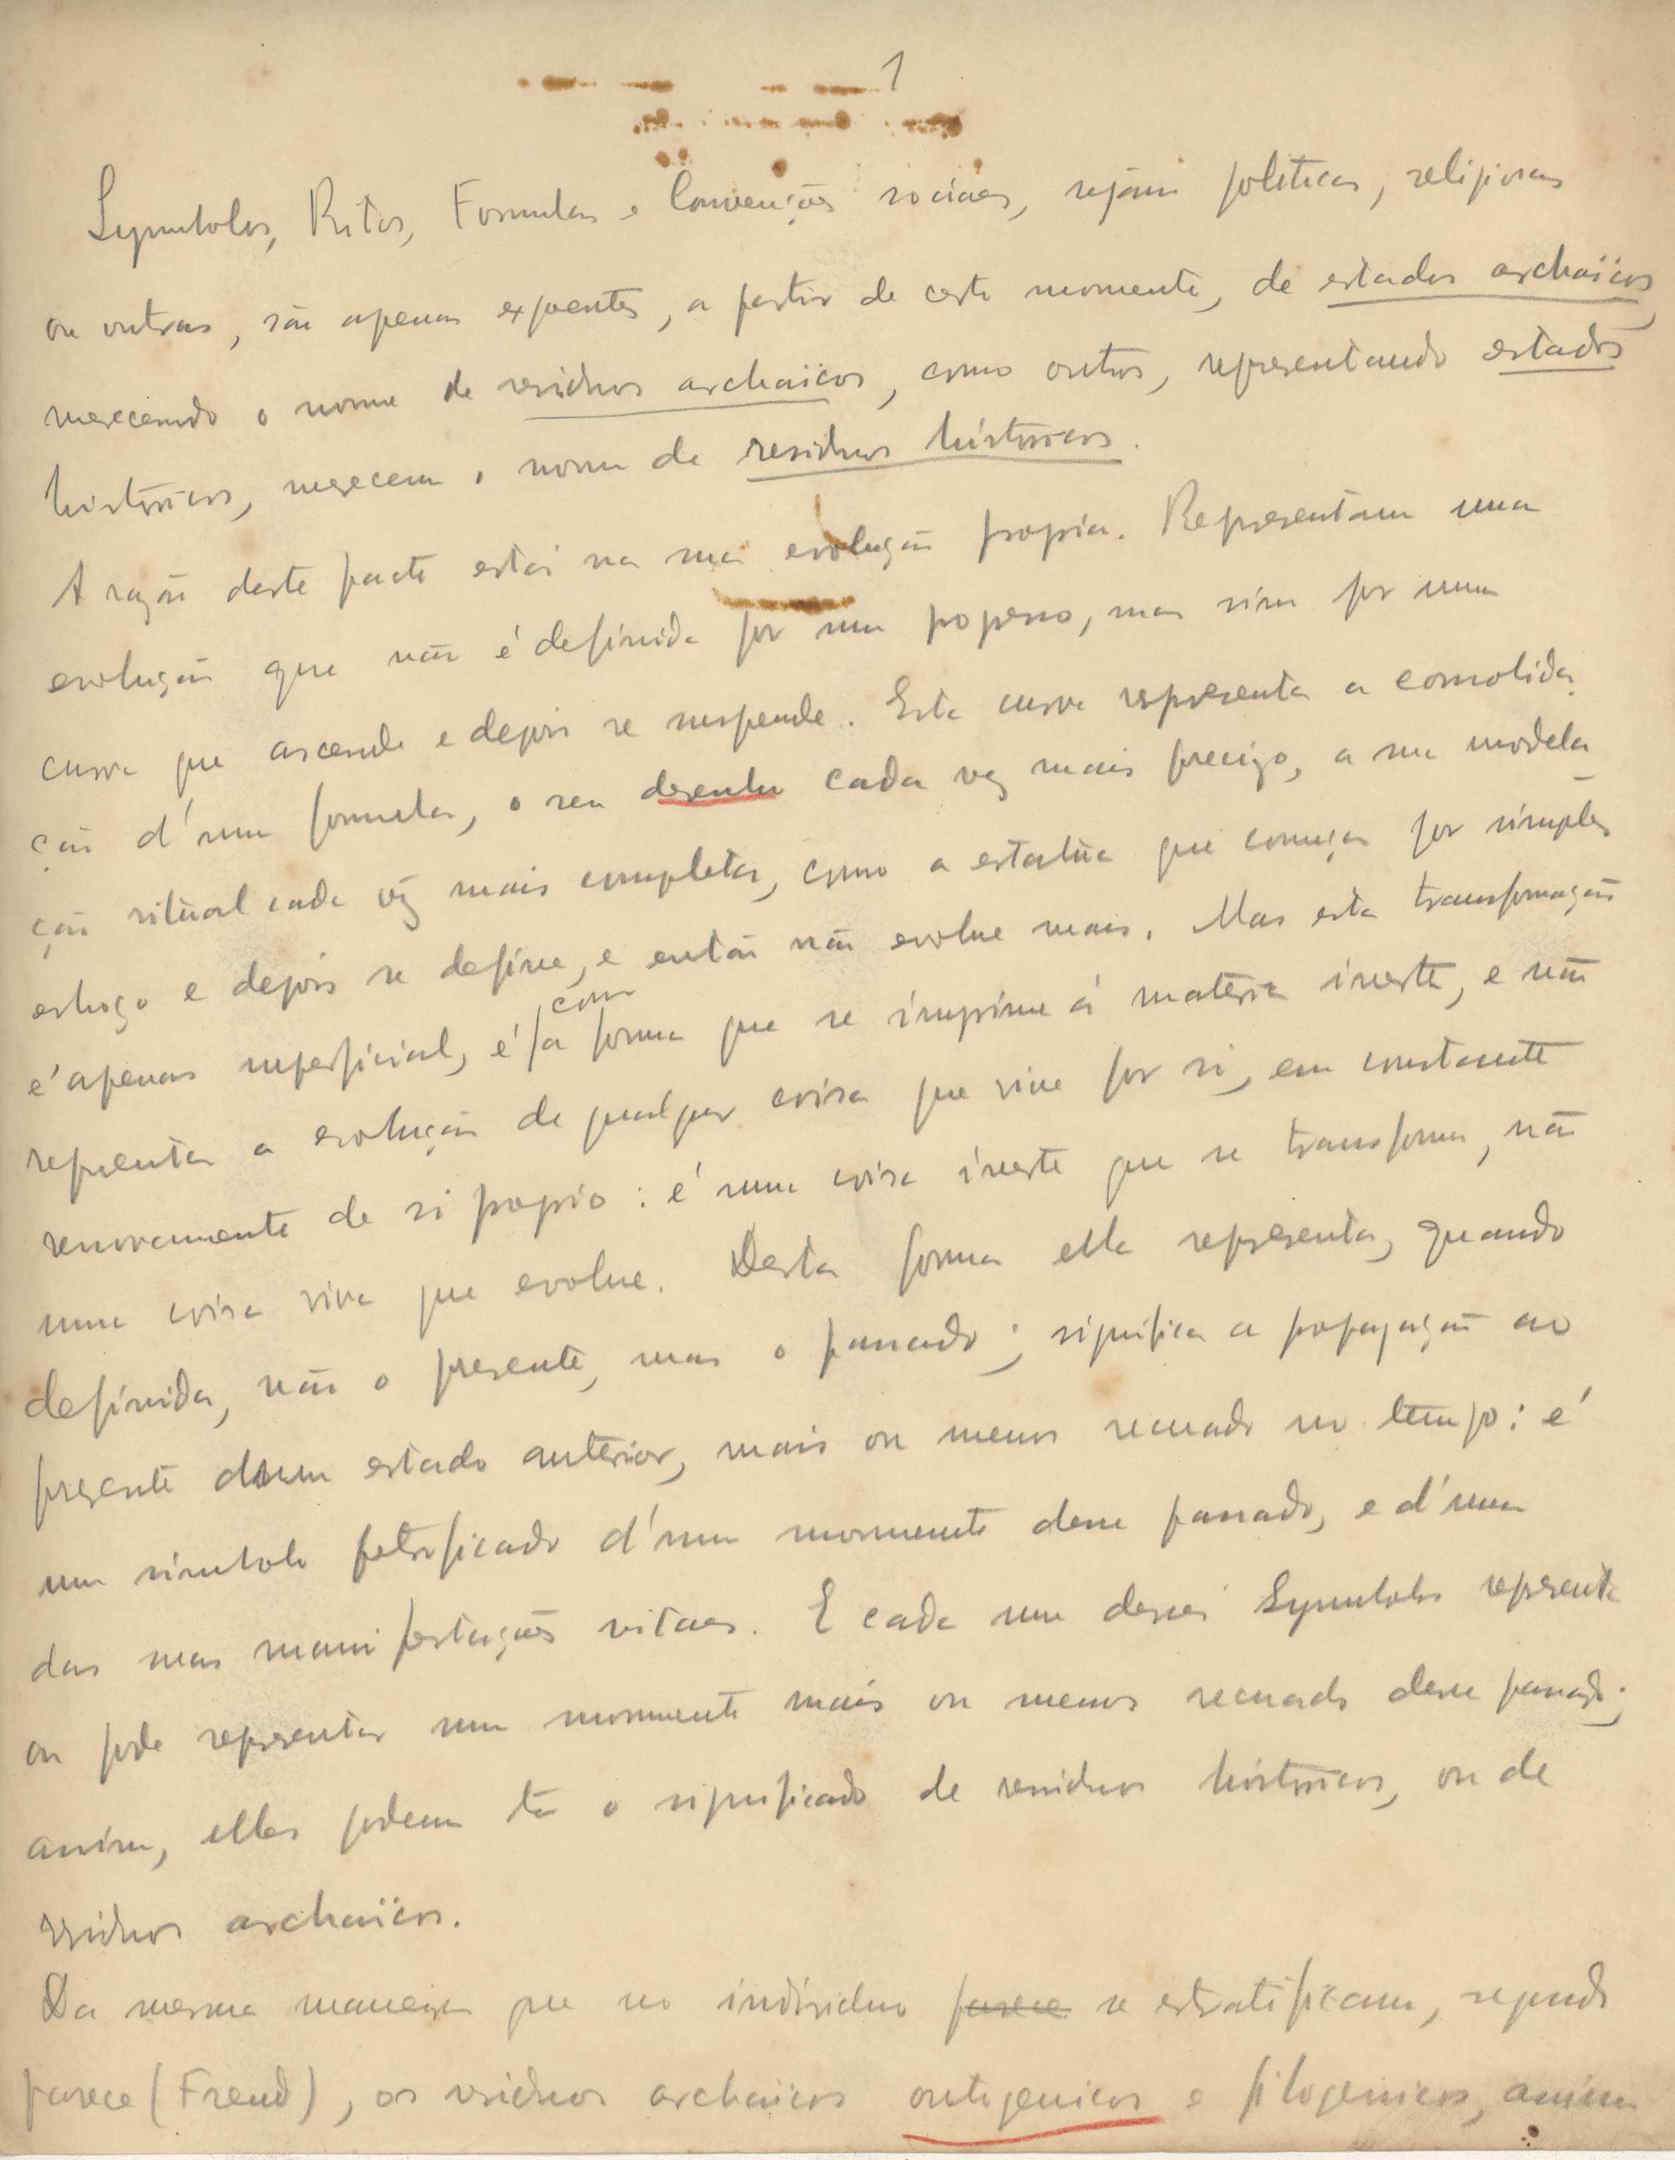 1
Symbolos, Ritos, Formulas e Convenções sociaes, sejam politicas, religiosas
ou outras, são apenas expoentes, a partir de certo momento, de estados archaïcos,
merecendo o nome de residuos archaïcos, como outros, representando estados
históricos, merecem o nome de residuos históricos.
A razão deste facto está na sua evolução propria. Representam uma
evolução que não é definida por um progresso, mas sim por uma
curva que ascende e depois se suspende. Esta curva representa a consolida-
ção d'uma formula, o seu desenho cada vez mais precizo, a sua modela-
ção ritual cada vez mais completa, como a estatua que começa por simples
esboço e depois se define, e então não evolue mais. Mas esta transformação
é apenas superficial, é com a forma que se imprime á materia inerte, e não
representa a evolução de qualquer coisa que vive por si, em constante
renovamento de si proprio: é uma coisa inerte que se transforma, não
uma coisa viva que evolue. Desta forma ella representa, quando
definida, não o presente, mas o passado; significa a propagação ao
presente dum estado anterior, mais ou menos recuado no tempo: é
um simbolo petrificado d'um momento desse passado, e d'uma
das suas manifestações vitaes. E cada um desses Symbolos representa
ou pode representar um momento mais ou menos recuado desse passado;
assim, elles podem ter o significado de residuos históricos, ou de
residuos archaïcos.
Da mesma maneira que no individuo parece se estratificam, segundo
parece (Freud), os residuos archaicos ontogenicos e filogenicos, assim